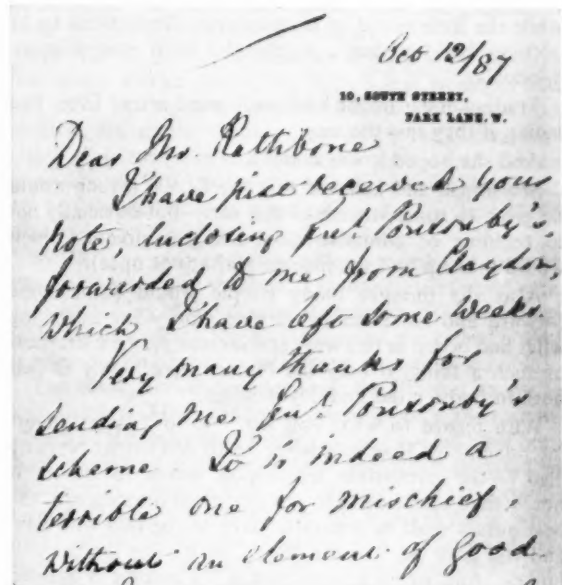 Oct 12/87
10, SOUTH STREET,
PARK LANE, W.
Dear Mr Rathbone
I have just received your
note inclosing Genl. Ponsonby's,
forwarded to me from Claydon,
which I have left some weeks.
Very many thanks for
sending me Genl. Ponsonby's
scheme It is indeed a
terrible one for mischief,
without an element of good